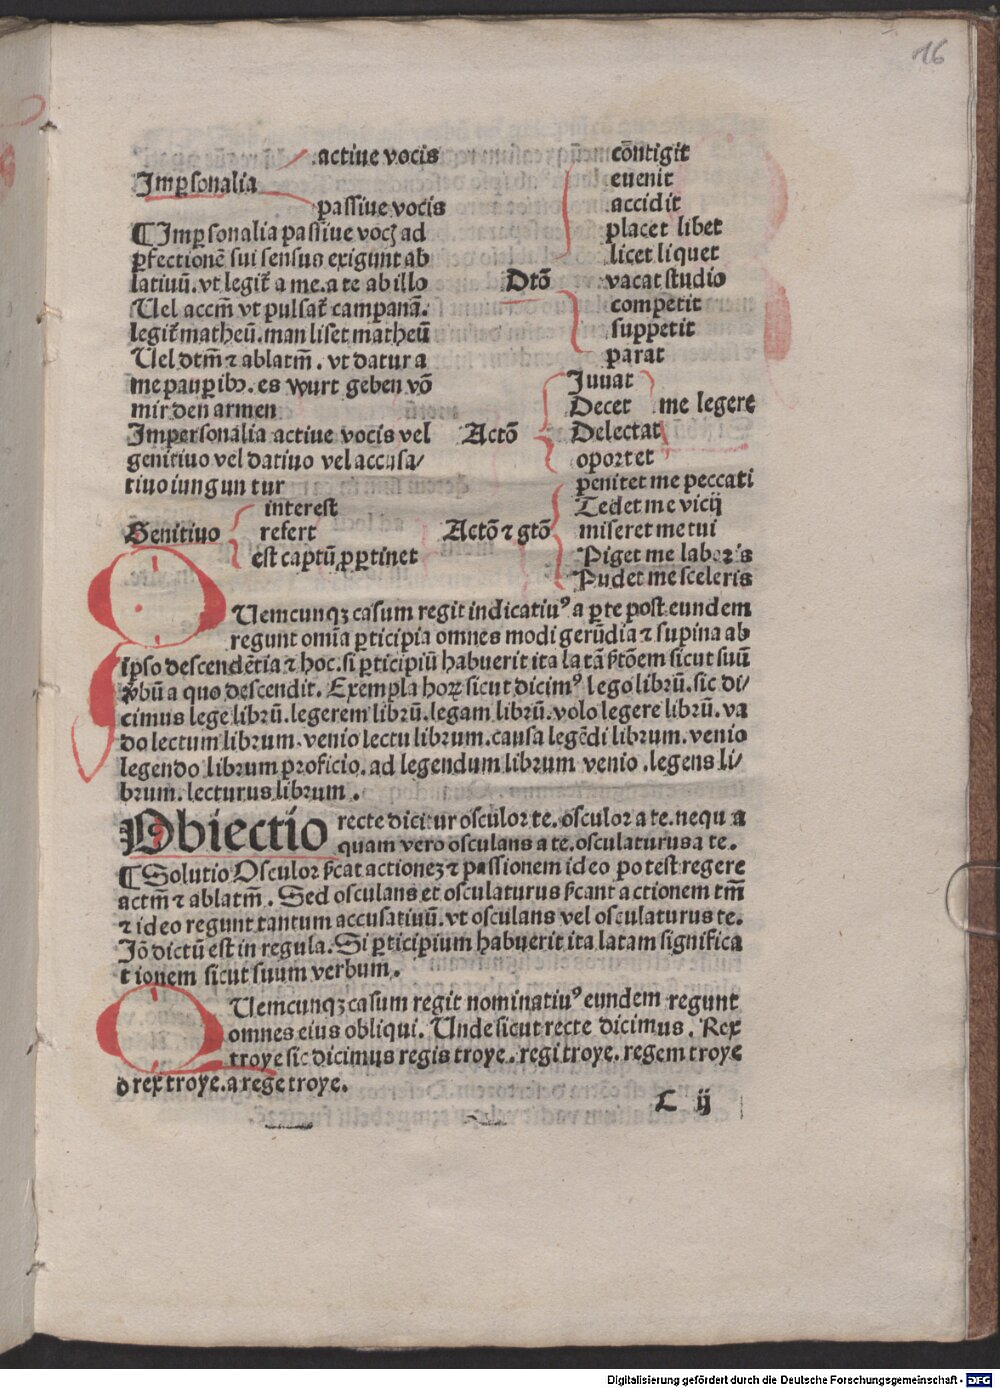 16
actiue vocis
Imꝑsonalia
passiue vocis
¶ Imꝑsonalia passiue vocꝭ ad
ꝑfectionē sui sensus exigunt ab
latiuū. vt legit̄ a me. a te ab illo
Uel accm̄ vt pulsat̄ campanā.
legit̄ matheū. man liset matheū
Uel dtm̄ ⁊ ablatm̄. vt datur a
me pauꝑibꝰ. es wurt geben vō
mir den armen
Impersonalia actiue vocis vel
genitiuo vel datiuo vel accusa/
tiuo iunguntur
interest
Genitiuo refert
est captū ꝓ ꝑtinet
cōntigit
euenit
accidit
placet libet
licet liquet
Dtō vacat studio
competit
suppetit
parat
Juuat
Decet me legere
Actō Delectat
oportet
penitet me peccati
Tedet me vicij
Actō ⁊ gtō miseret me tui
Piget me laboris
Pudet me sceleris
Uemcunqꝫ casum regit indicatiuꝰ a ꝑte post eundem
regunt omīa ꝑticipia omnes modi gerūdia ⁊ supina ab
ipso descendētia ⁊ hoc. si ꝑticipiū habuerit ita latā s̄tōem sicut suū
v̄bū a quo descendit. Exempla hoꝝ sicut dicimꝰ lego librū. sic di/
cimus lege librū. legerem librū. legam librū. volo legere librū. va
do lectum librum. venio lectu librum. causa legēdi librum. venio
legendo librum proficio. ad legendum librum venio. legens li/
brum. lecturus librum.
Obiectio recte dicitur osculor te. osculor a te. nequa
quam vero osculans a te. osculaturus a te.
¶ Solutio Osculor s̄cat actionez ⁊ passionem ideo potest regere
actm̄ ⁊ ablatm̄. Sed osculans et osculaturus s̄cant actionem tm̄
⁊ ideo regunt tantum accusatiuū. vt osculans vel osculaturus te.
Jō dictū est in regula. Si ꝑticipium habuerit ita latam significa
tionem sicut suum verbum.
Uemcunqꝫ casum regit nominatiuꝰ eundem regunt
omnes eius obliqui. Unde sicut recte dicimus. Rex
troye sic dicimus regis troye. regi troye. regem troye
o rex troye. a rege troye.
C ij
Digitalisierung gefördert durch die Deutsche Forschungsgemeinschaft - DFG